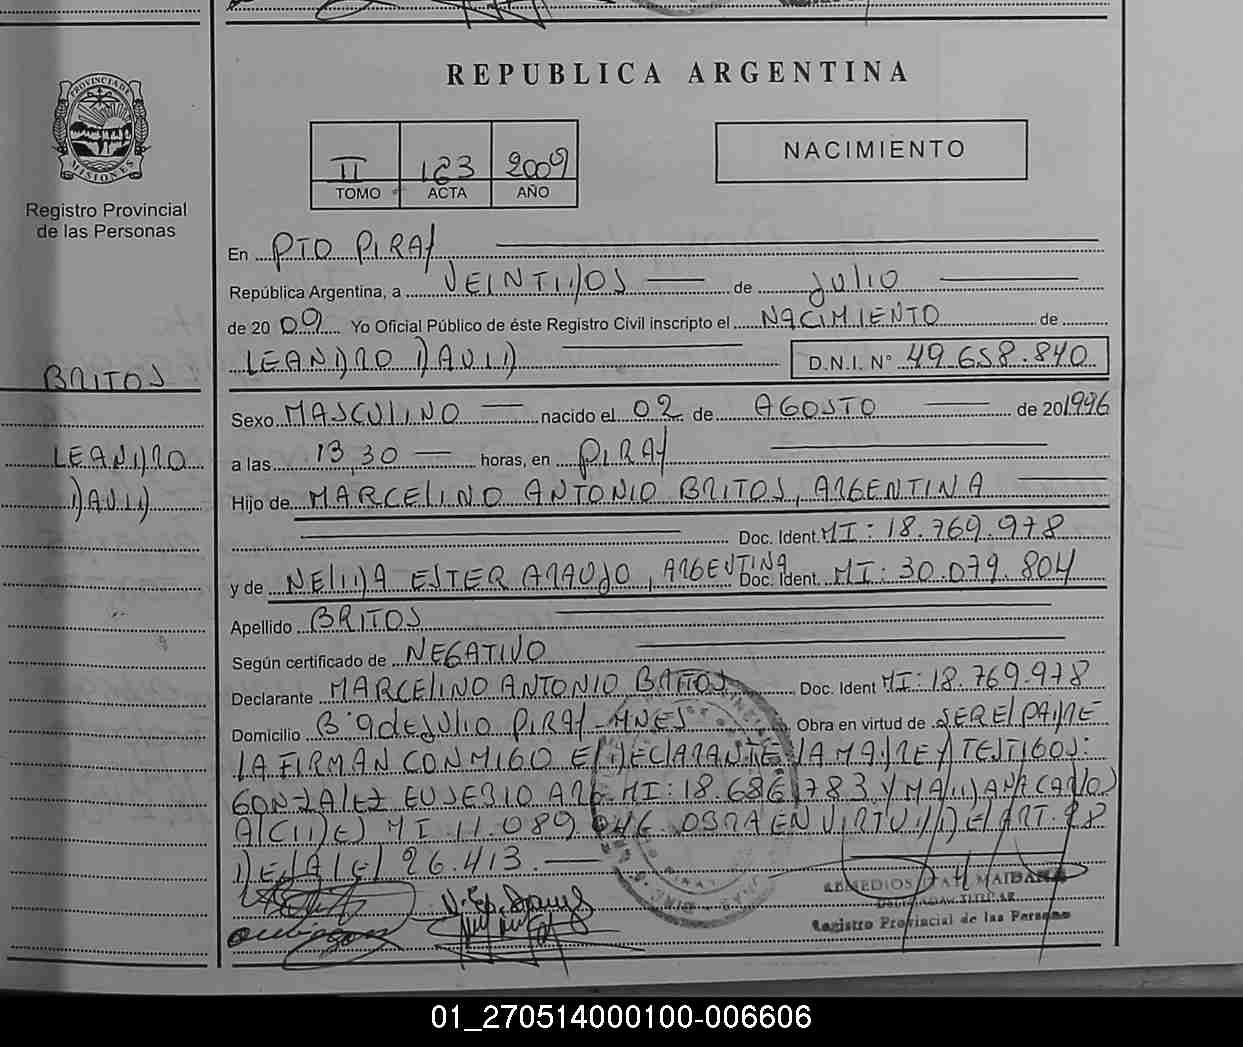 REPUBLICA ARGENTINA
PROVINCIA DE
MISIONES
Registro Provincial
de las Personas
II 123 2009
TOMO ACTA AÑO
NACIMIENTO
En PTO PIRAY
República Argentina, a VEINTIDOS de JULIO
de 20 09 Yo Oficial Público de éste Registro Civil inscripto el NACIMIENTO de
LEANDRO DAVID D.N.I. N° 49.658.840
BRITOS
LEANDRO
DAVID
Sexo MASCULINO nacido el 02 de AGOSTO de 201996
a las 13,30 horas, en PIRAY
Hijo de MARCELINO ANTONIO BRITOS, ARGENTINA
Doc. Ident. MI: 18.769.978
y de NELIDA ESTER ARAUJO, ARGENTINA Doc. Ident. MI: 30.079.804
Apellido BRITOS
Según certificado de NEGATIVO
Declarante MARCELINO ANTONIO BRITOS Doc. Ident MI: 18.769.978
Domicilio B° 9 de JULIO PIRAY-MNES Obra en virtud de SER EL PADRE
LA FIRMAN CONMIGO EL DECLARANTE LA MADRE Y TESTIGOS:
GONZALEZ EUSEBIO ARG. MI: 18.686.783 Y MAIDANA CARLOS
ALCIDES MI 11.089.046. OBRA EN VIRTUD DEL ART. 28
DE LA LEY 26.413.
REMEDIOS ITATI MAIDANA
Registro Provincial de las Personas
01_270514000100-006606